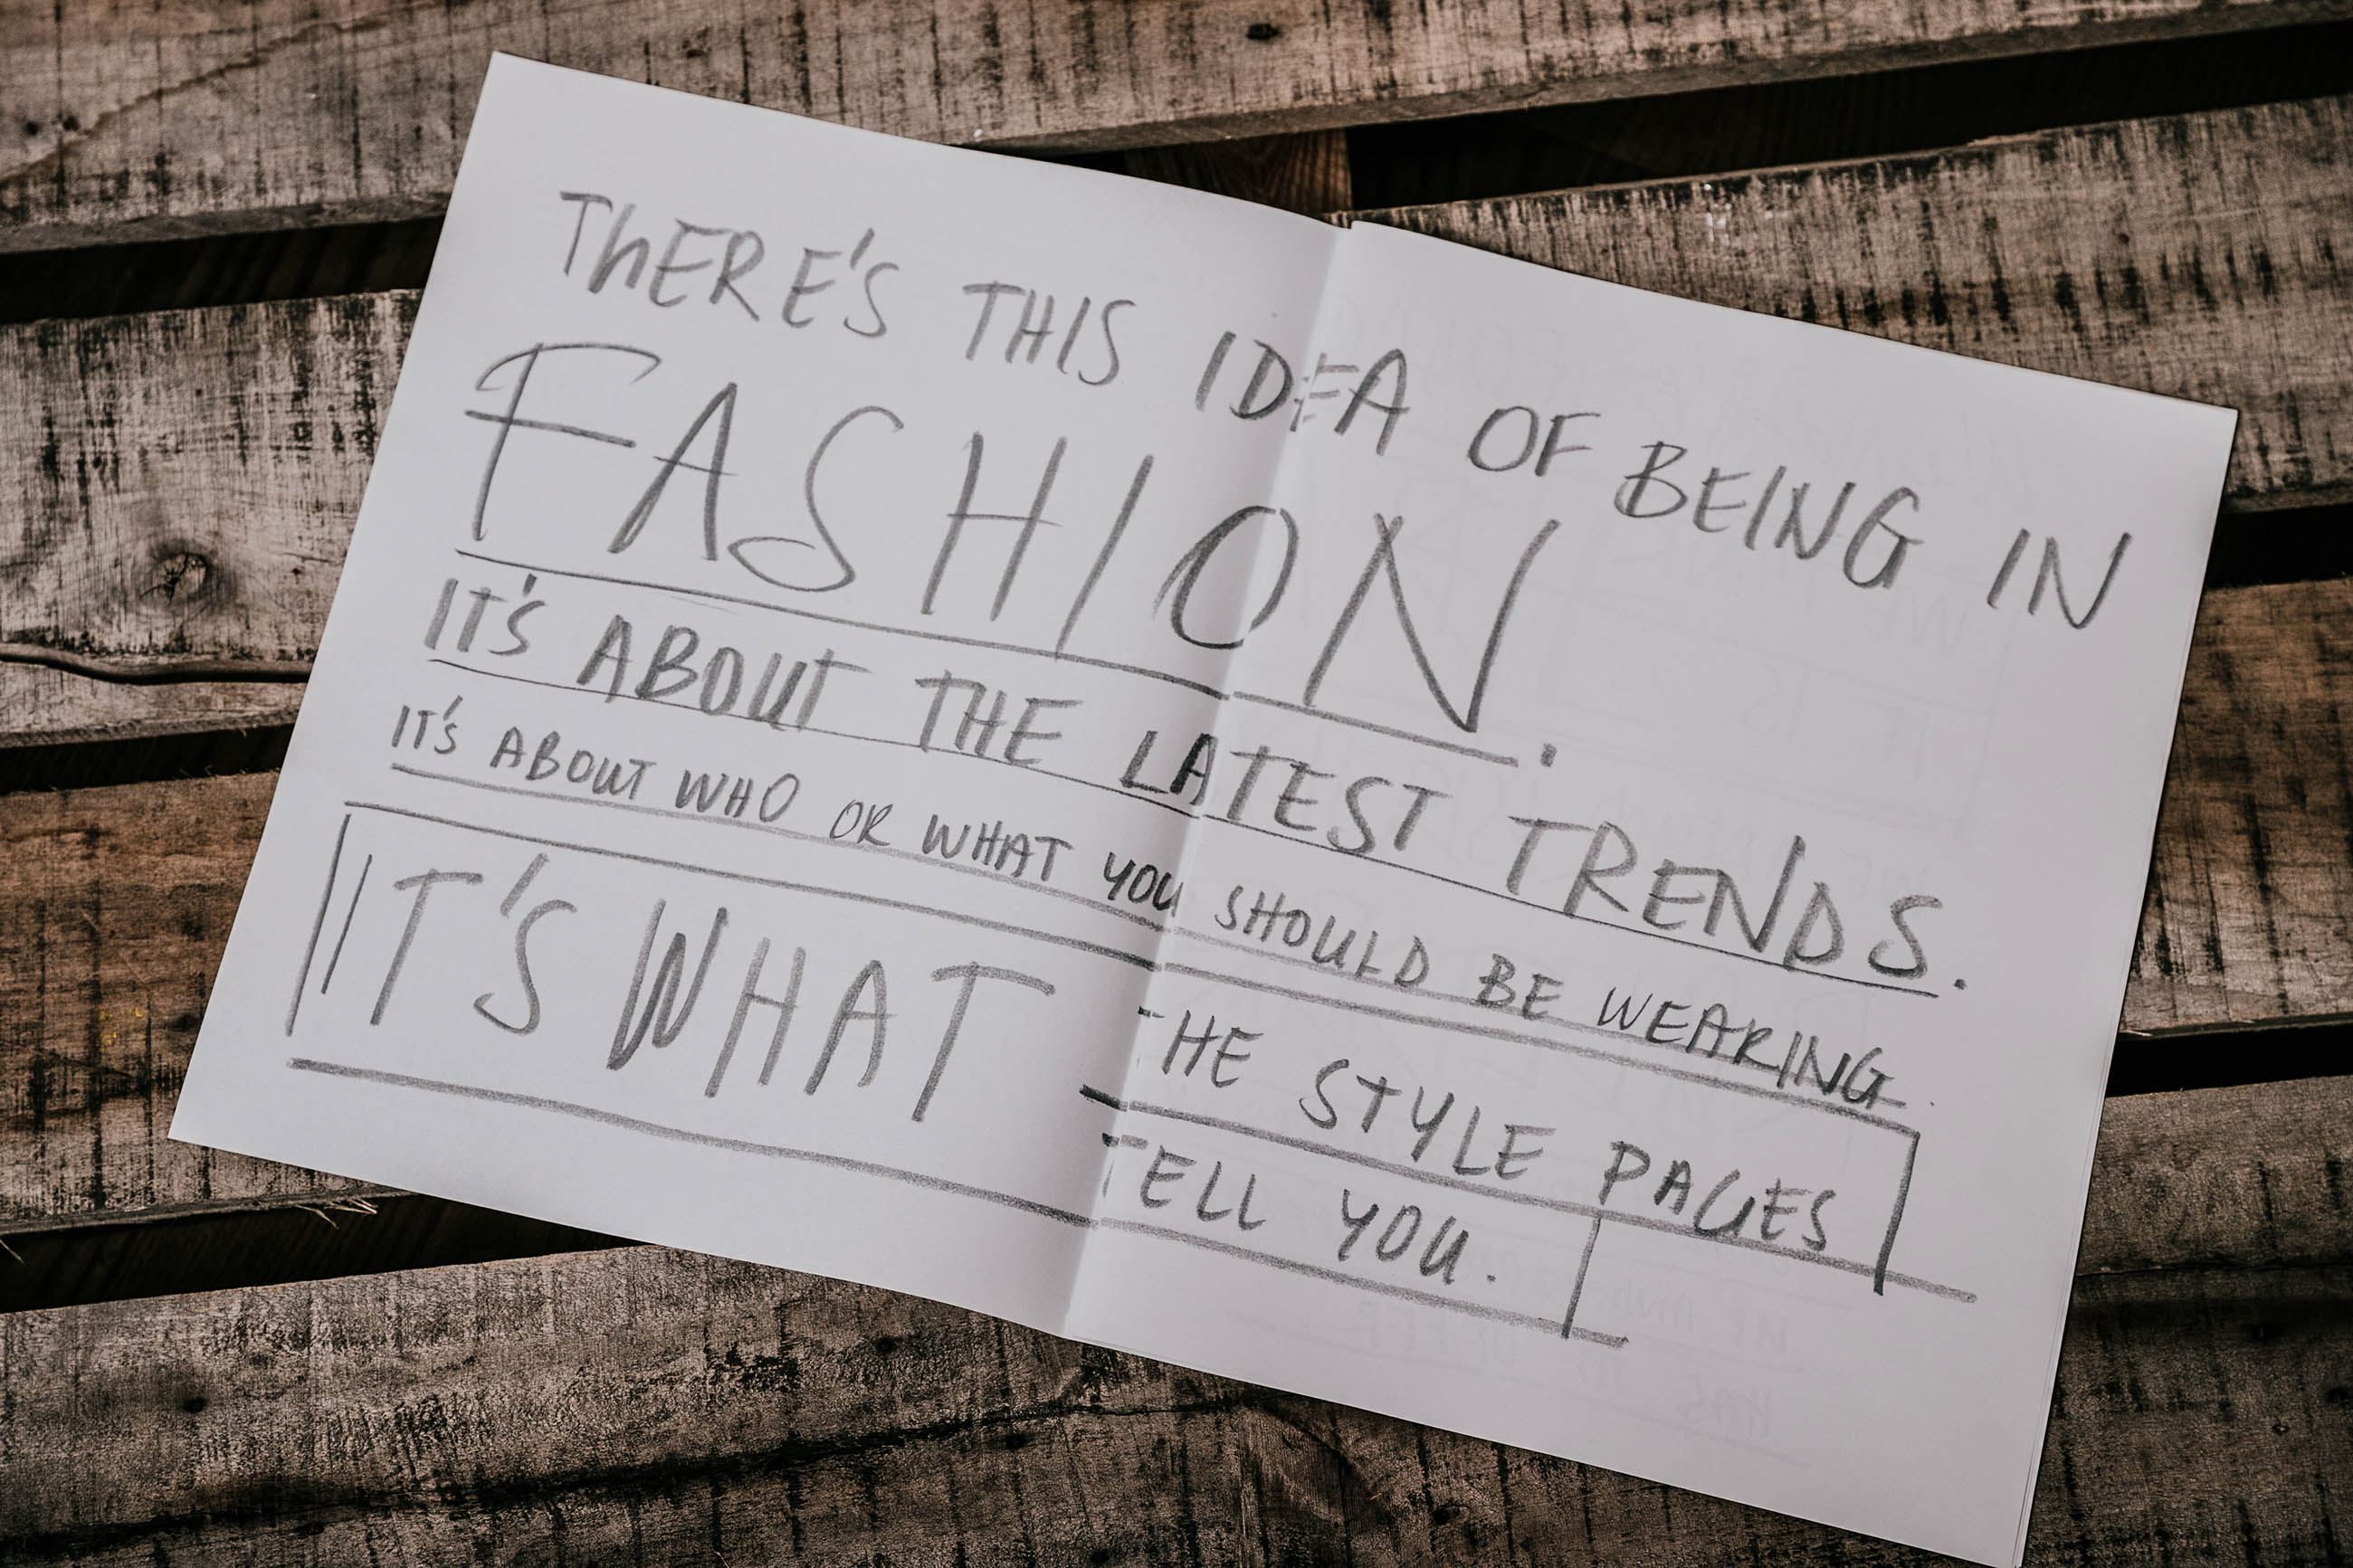 ThERE'S THIS IDEA OF BEING IN
FASHION.
IT'S ABOUT THE LATEST TRENDS.
IT'S ABOUT WHO OR WHAT YOU SHOULD BE WEARING.
IT'S WHAT THE STYLE PAGES
TELL YOU.